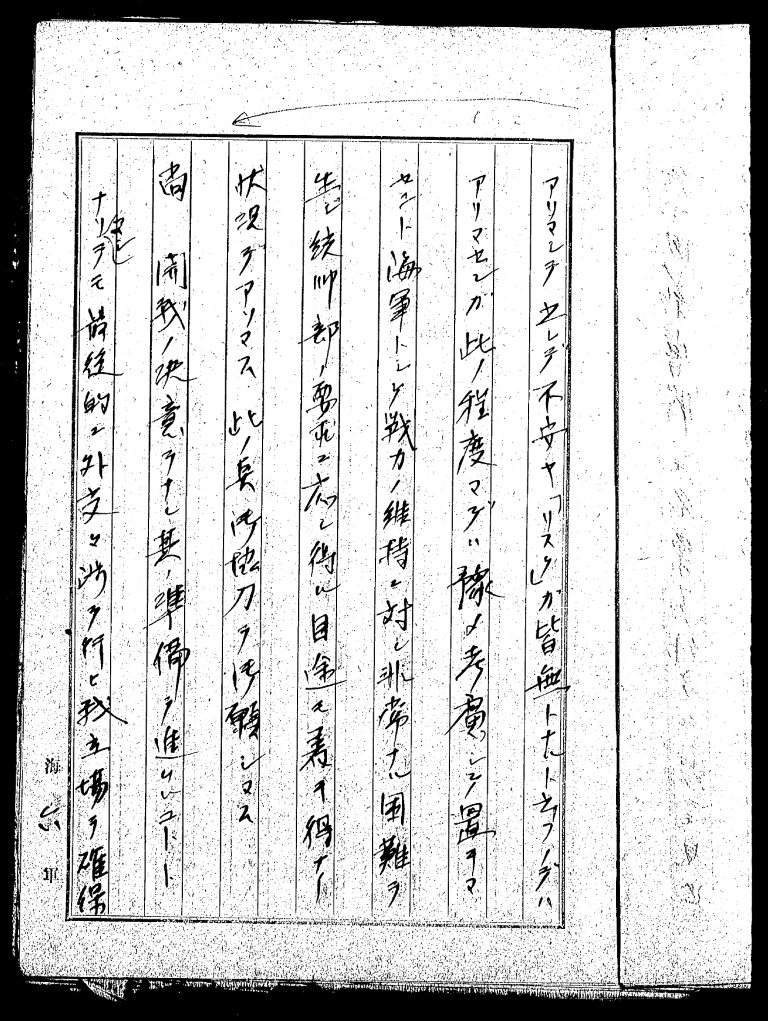 アリマシテ之レデ不安ヤ「リスク」ガ皆無トナルト云フノデハ
アリマセンガ此ノ程度マデハ豫メ考慮シテ置キマ
セント海軍トシテ戦力ノ維持ニ対シ非常ナル困難ヲ
生ジ統帥部ノ要求ニ応ジ得ル目途モ着キ得ナイ
状況デアリマス此ノ点御協力ヲ御願シマス
尚 開戦ノ決意ヲナシ其ノ準備ヲ進ムルコトト
ナリテモ最後的ニ外交々渉ヲ行ヒ我立場ヲ確保
海
六
軍